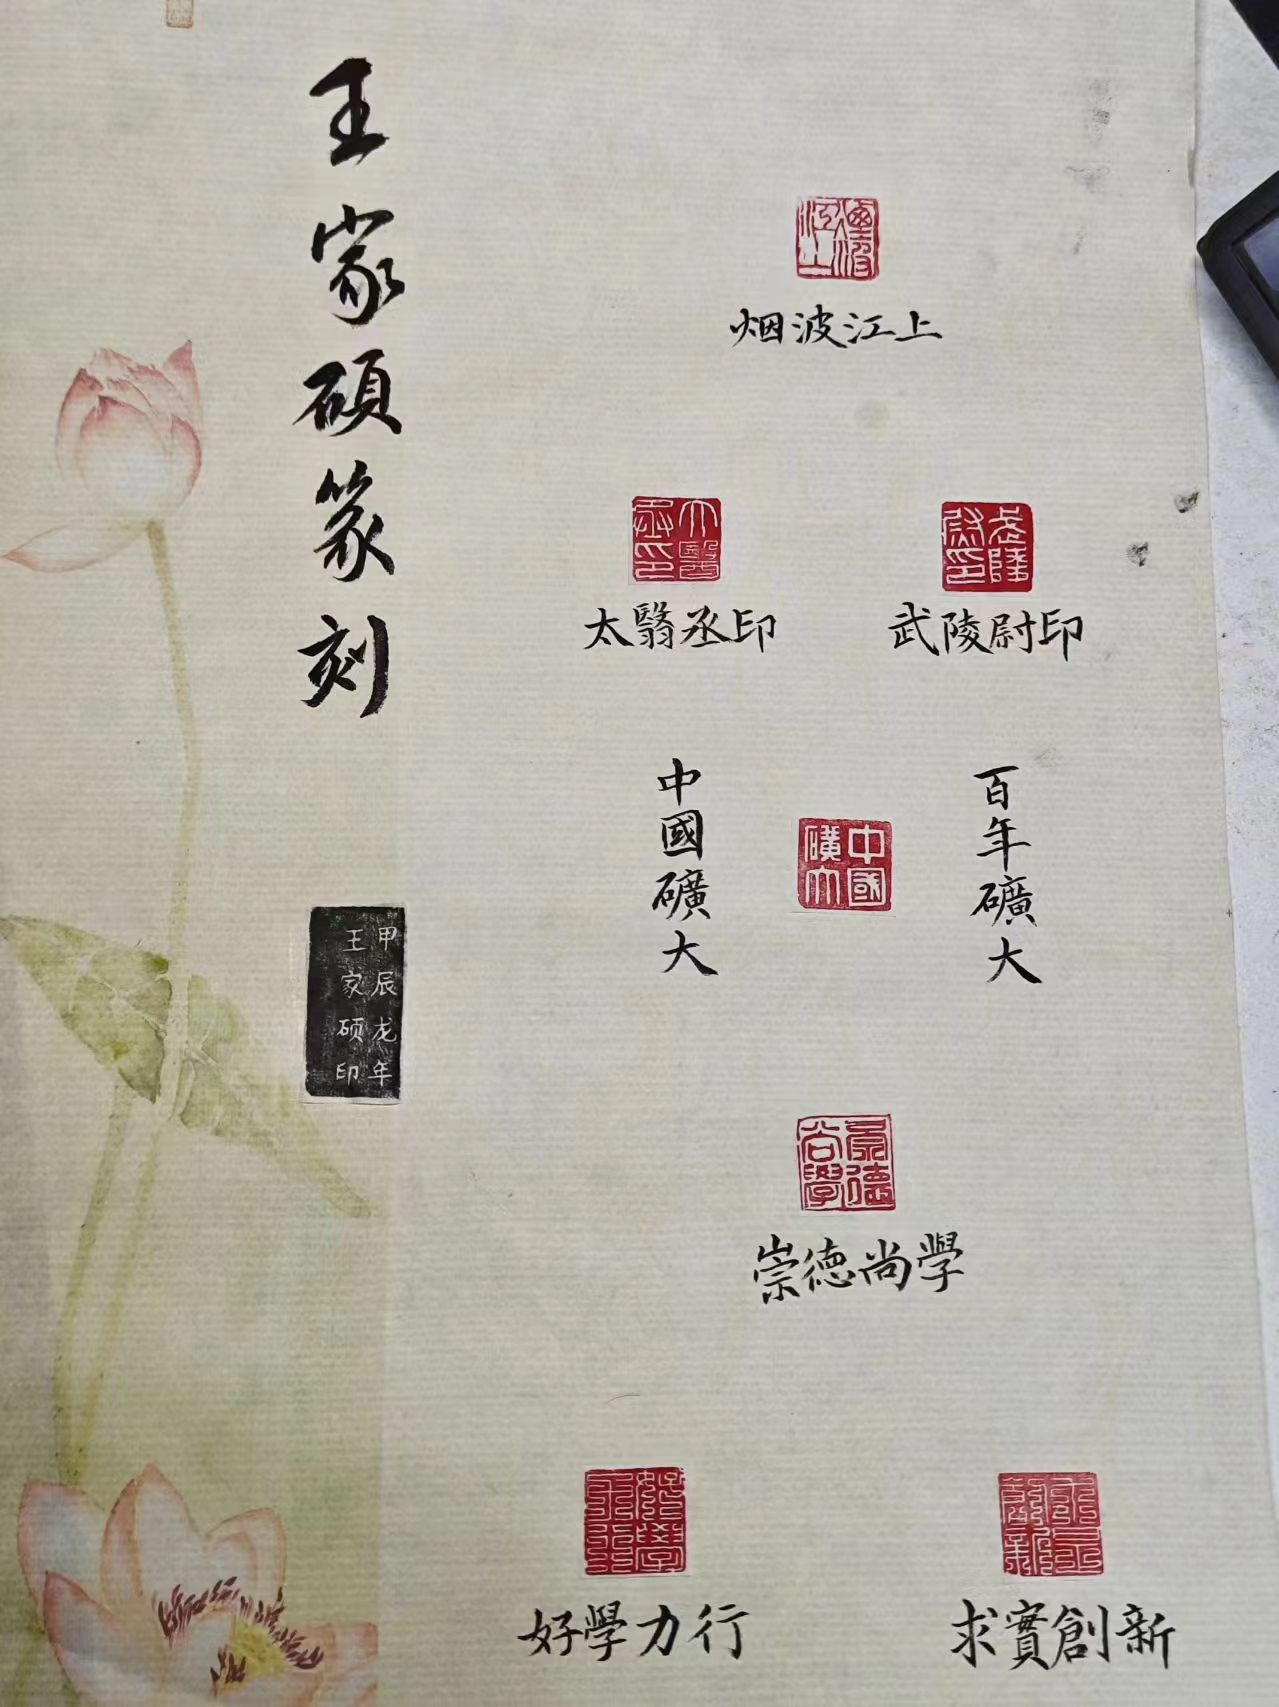 王家硕篆刻
甲辰龙年
王家硕印
烟波江上
太醫丞印
武陵尉印
百年礦大
中國礦大
中國礦大
崇德尚學
好學力行
求實創新